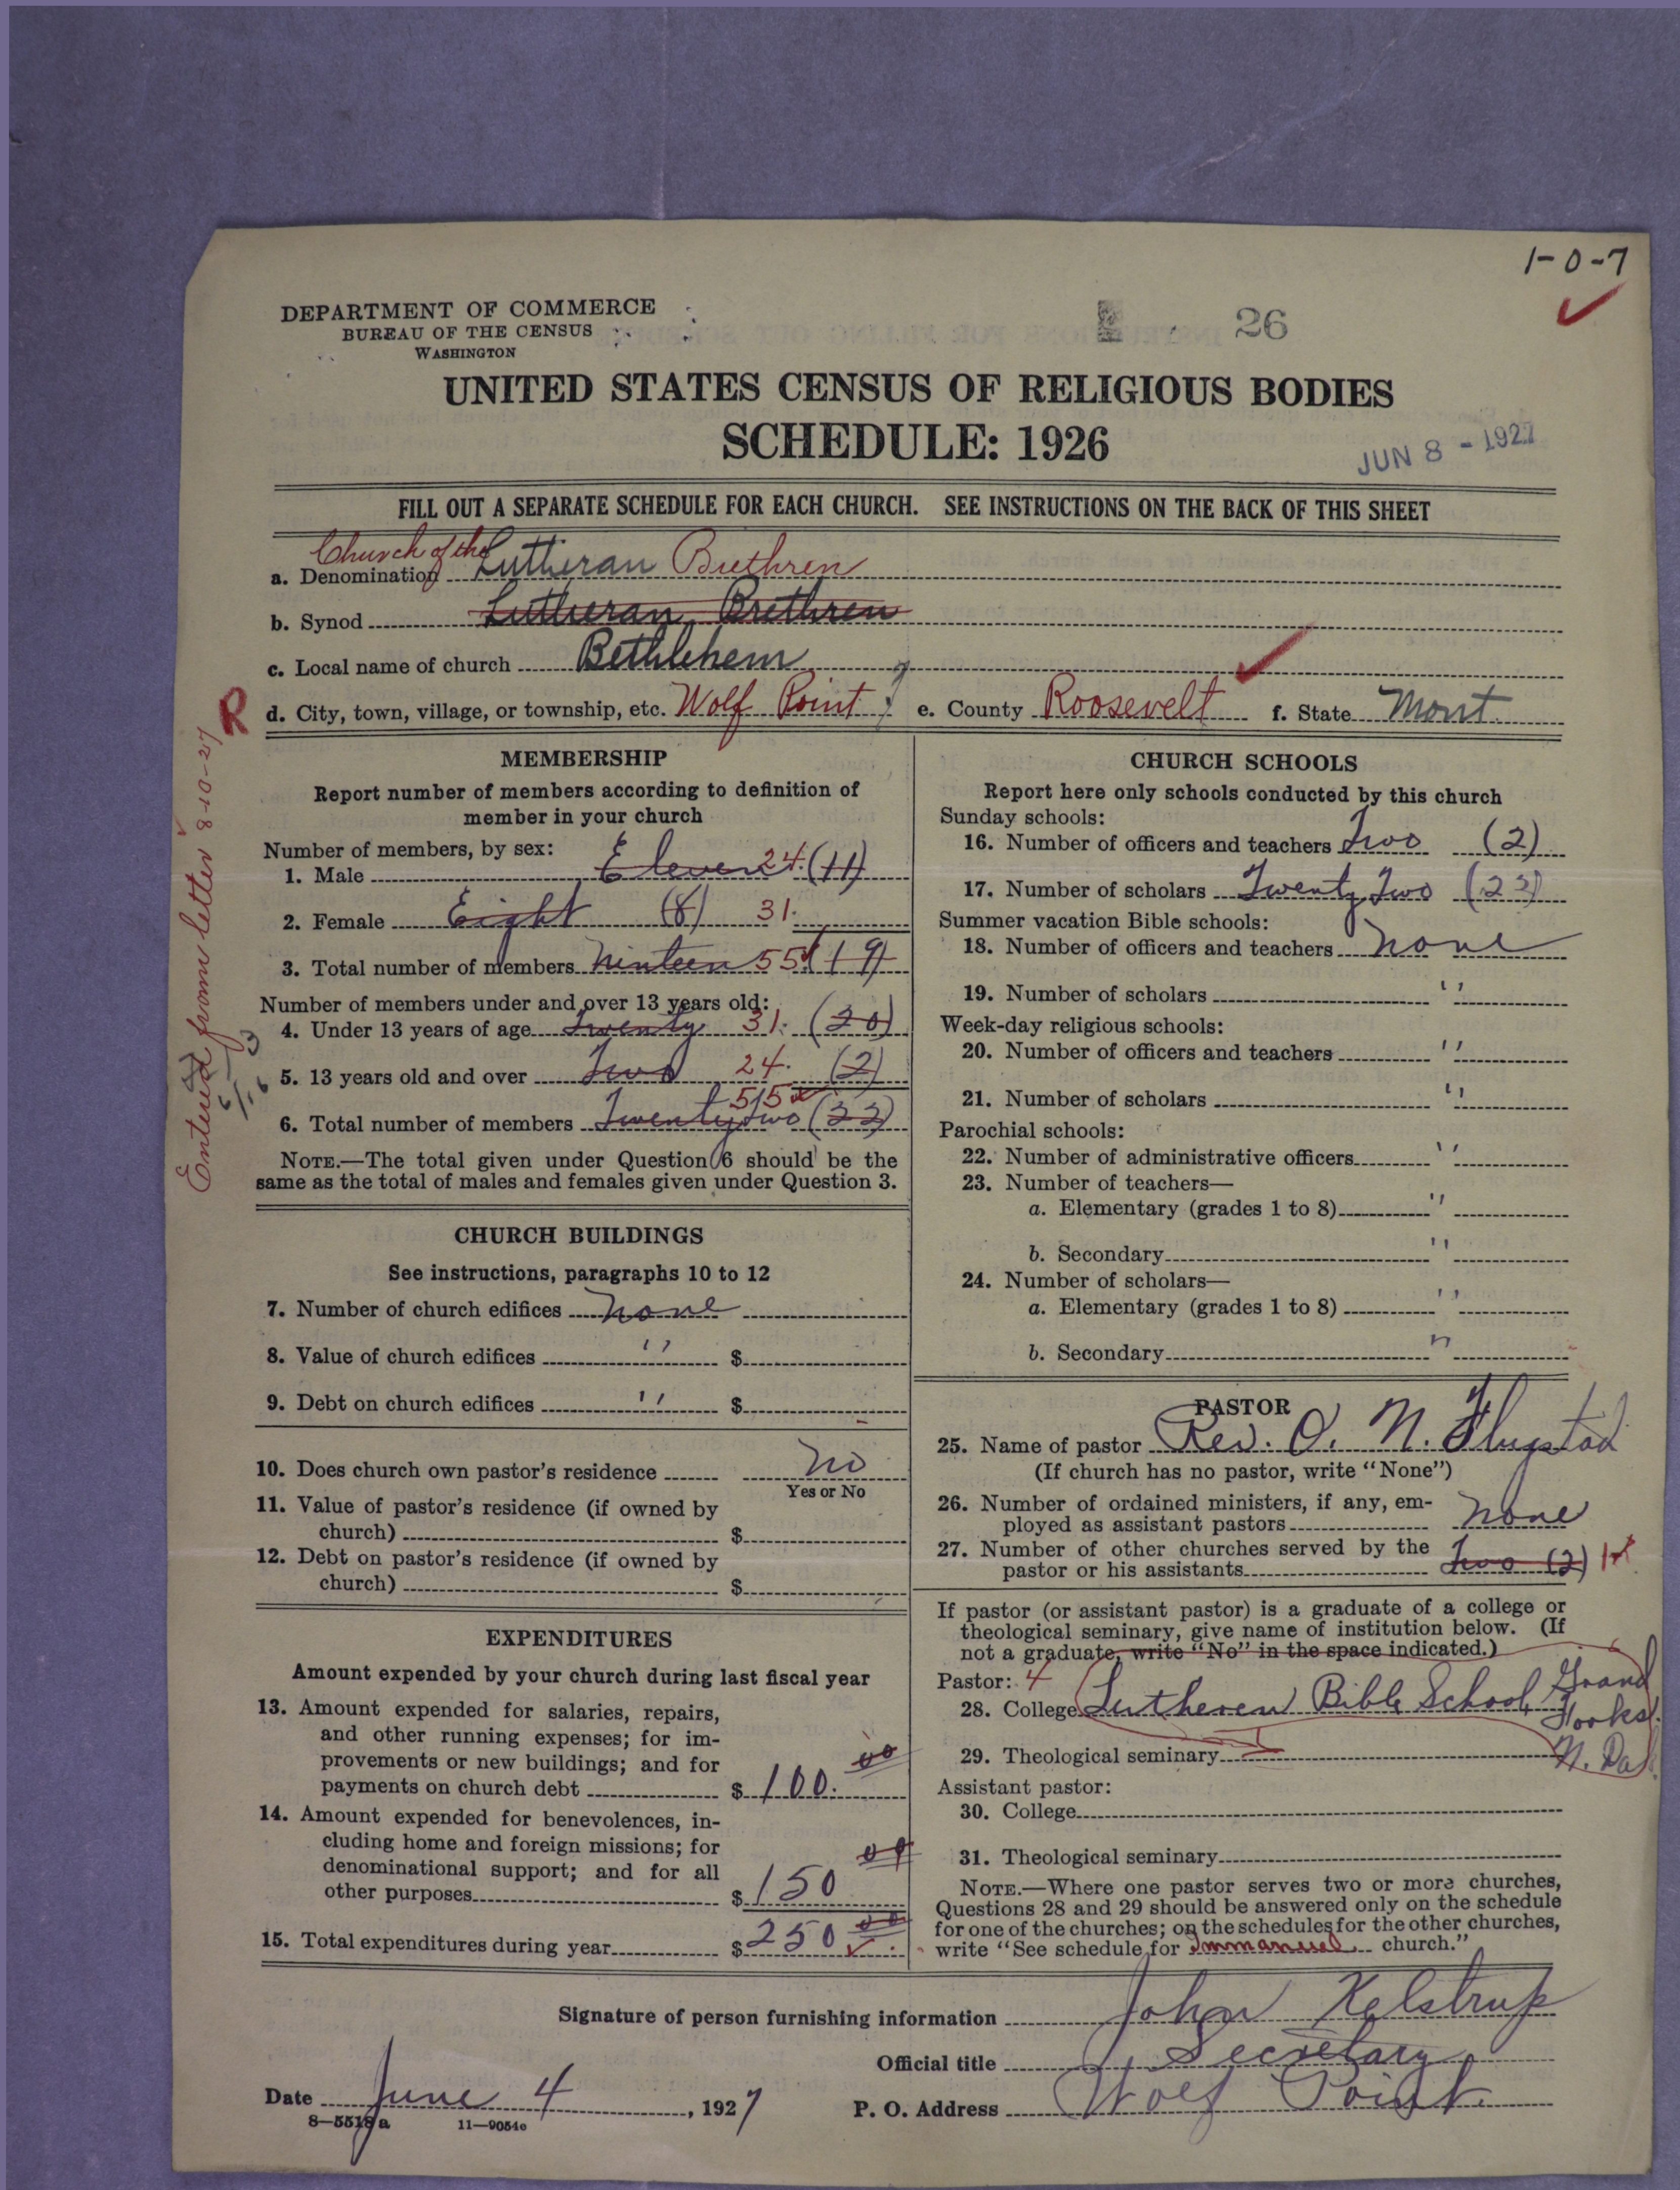 1-0-7
DEPARTMENT OF COMMERCE
BUREAU OF THE CENSUS
WASHINGTON
26
UNITED STATES CENSUS OF RELIGIOUS BODIES
SCHEDULE: 1926
JUN 8 - 1927
FILL OUT A SEPARATE SCHEDULE FOR EACH CHURCH. SEE INSTRUCTIONS ON THE BACK OF THIS SHEET
Church of the
a. Denomination Lutheran Brethren
b. Synod Lutheran Brethren
c. Local name of church Bethlehem
R
d. City, town, village, or township, etc. Wolf Point e. County Roosevelt f. State Mont.
Entered from letter 8-10-27
MEMBERSHIP
Report number of members according to definition of
member in your church
Number of members, by sex:
1. Male Eleven 24. (11)
2. Female Eight (8) 31.
3. Total number of members Ninteen 55 (19)
Number of members under and over 13 years old:
4. Under 13 years of age Twenty 31. (20)
5. 13 years old and over Two 24. (2)
55
6. Total number of members Twenty Two (22)
NOTE.—The total given under Question 6 should be the
same as the total of males and females given under Question 3.
CHURCH BUILDINGS
See instructions, paragraphs 10 to 12
7. Number of church edifices none
8. Value of church edifices " $
9. Debt on church edifices " $
10. Does church own pastor's residence No
Yes or No
11. Value of pastor's residence (if owned by
church) $
12. Debt on pastor's residence (if owned by
church) $
EXPENDITURES
Amount expended by your church during last fiscal year
13. Amount expended for salaries, repairs,
and other running expenses; for im-
provements or new buildings; and for
payments on church debt $ 100. 00
14. Amount expended for benevolences, in-
cluding home and foreign missions; for
denominational support; and for all
other purposes $ 150 00
15. Total expenditures during year $ 250 00
CHURCH SCHOOLS
Report here only schools conducted by this church
Sunday schools:
16. Number of officers and teachers Two (2)
17. Number of scholars Twenty Two (22)
Summer vacation Bible schools:
18. Number of officers and teachers none
19. Number of scholars "
Week-day religious schools:
20. Number of officers and teachers "
21. Number of scholars "
Parochial schools:
22. Number of administrative officers "
23. Number of teachers—
a. Elementary (grades 1 to 8) "
b. Secondary "
24. Number of scholars—
a. Elementary (grades 1 to 8) "
b. Secondary "
PASTOR
25. Name of pastor Rev. O. N. Flugstad
(If church has no pastor, write "None")
26. Number of ordained ministers, if any, em-
ployed as assistant pastors none
27. Number of other churches served by the
pastor or his assistants Two (2) 1
If pastor (or assistant pastor) is a graduate of a college or
theological seminary, give name of institution below. (If
not a graduate, write "No" in the space indicated.)
Pastor: 4
28. College Lutheren Bible School Grand
Forks.
29. Theological seminary N. Da
Assistant pastor:
30. College
31. Theological seminary
NOTE.—Where one pastor serves two or more churches,
Questions 28 and 29 should be answered only on the schedule
for one of the churches; on the schedules for the other churches,
write "See schedule for Immanuel church."
Signature of person furnishing information John Kelstrup
Official title Secretary
Date June 4, 1927 P. O. Address Wolf Point.
8—5518 a 11—9054c